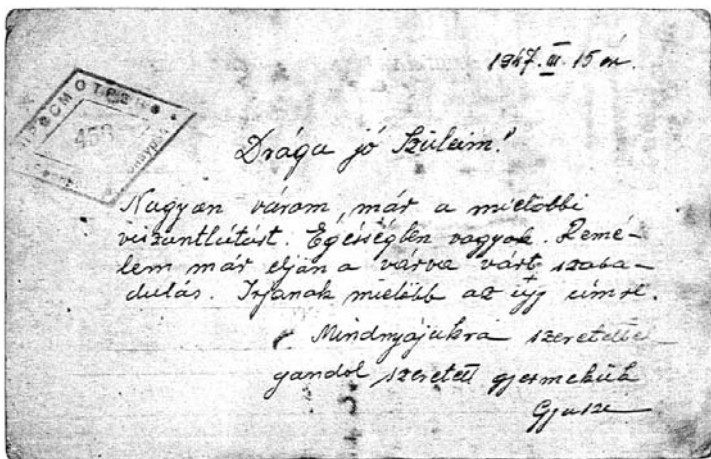 1947. III. 15 én.
ПРОСМОТРЕНО
458
Drága jó Szüleim!
Nagyon várom, már a mielőbbi
viszontlátást. Egésségben vagyok. Remé-
lem már eljön a várva várt szaba-
dulás. Irjanak mielőbb az új cimre.
Mindnyájukra szeretettel
gondol szerető gyermekük